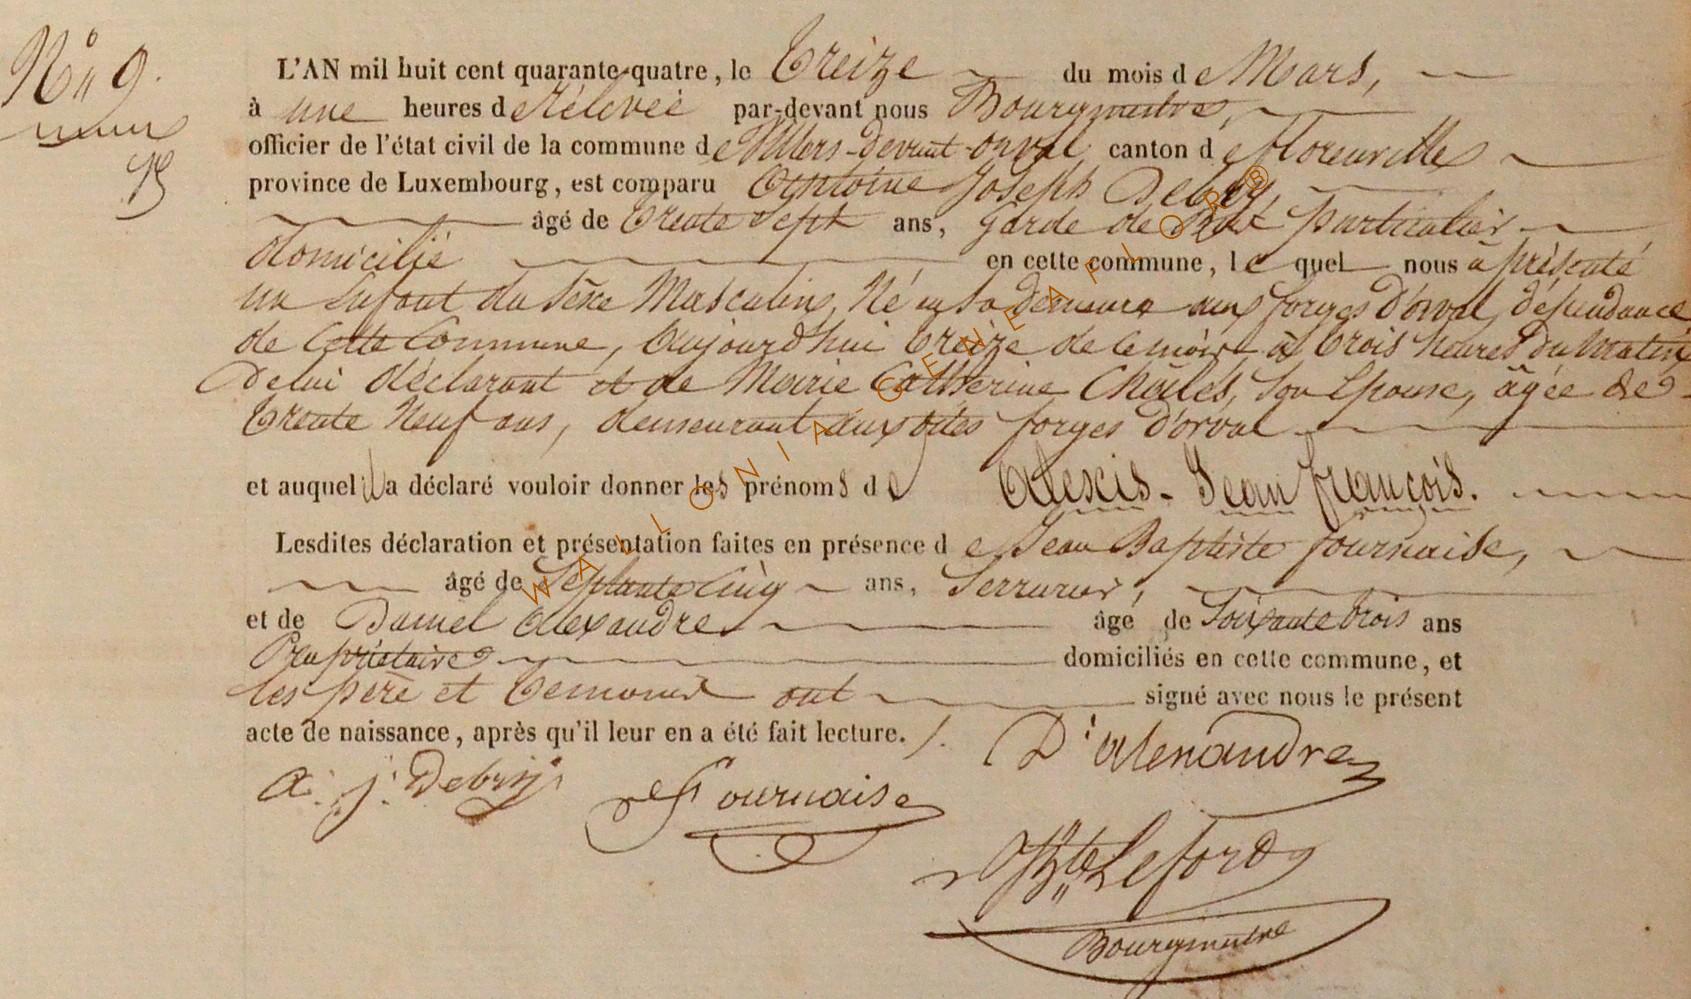 N° 9.
L'AN mil huit cent quarante-quatre, le Treize du mois de Mars,
à une heures de Rélevée par-devant nous Bourgmestre,
officier de l'état civil de la commune de Villers-devant-orval, canton de florenville
province de Luxembourg, est comparu Antoine Joseph Debry,
âgé de Trente Sept ans, garde de Bois particulier
domicilié en cette commune, lequel nous a présenté
un Enfant du Sexe Masculin, Né en Sa demeure aux forges D'orval, dépendance
de Cette Commune, Aujourd'hui Treize de ce mois à Trois heures du Matin
de lui déclarant et de Marie Catherine Châlès, Son Epouse, âgée de
Trente Neuf ans, demeurant aux dites forges D'orval
et auquel il a déclaré vouloir donner les prénoms de Alexis-Jean françois.
Lesdites déclaration et présentation faites en présence de Jean Baptiste fournaise,
âgé de Septante Cinq ans, Serrurier,
et de Daniel Alexandre âgé de Soixante trois ans
Propriétaire domiciliés en cette commune, et
les père et Temoins ont signé avec nous le présent
acte de naissance, après qu'il leur en a été fait lecture. /.
D. alexandre
A. j. Debry
Fournaise
JBte Leford
Bourgmestre
WALLONIA GENEALOGRB